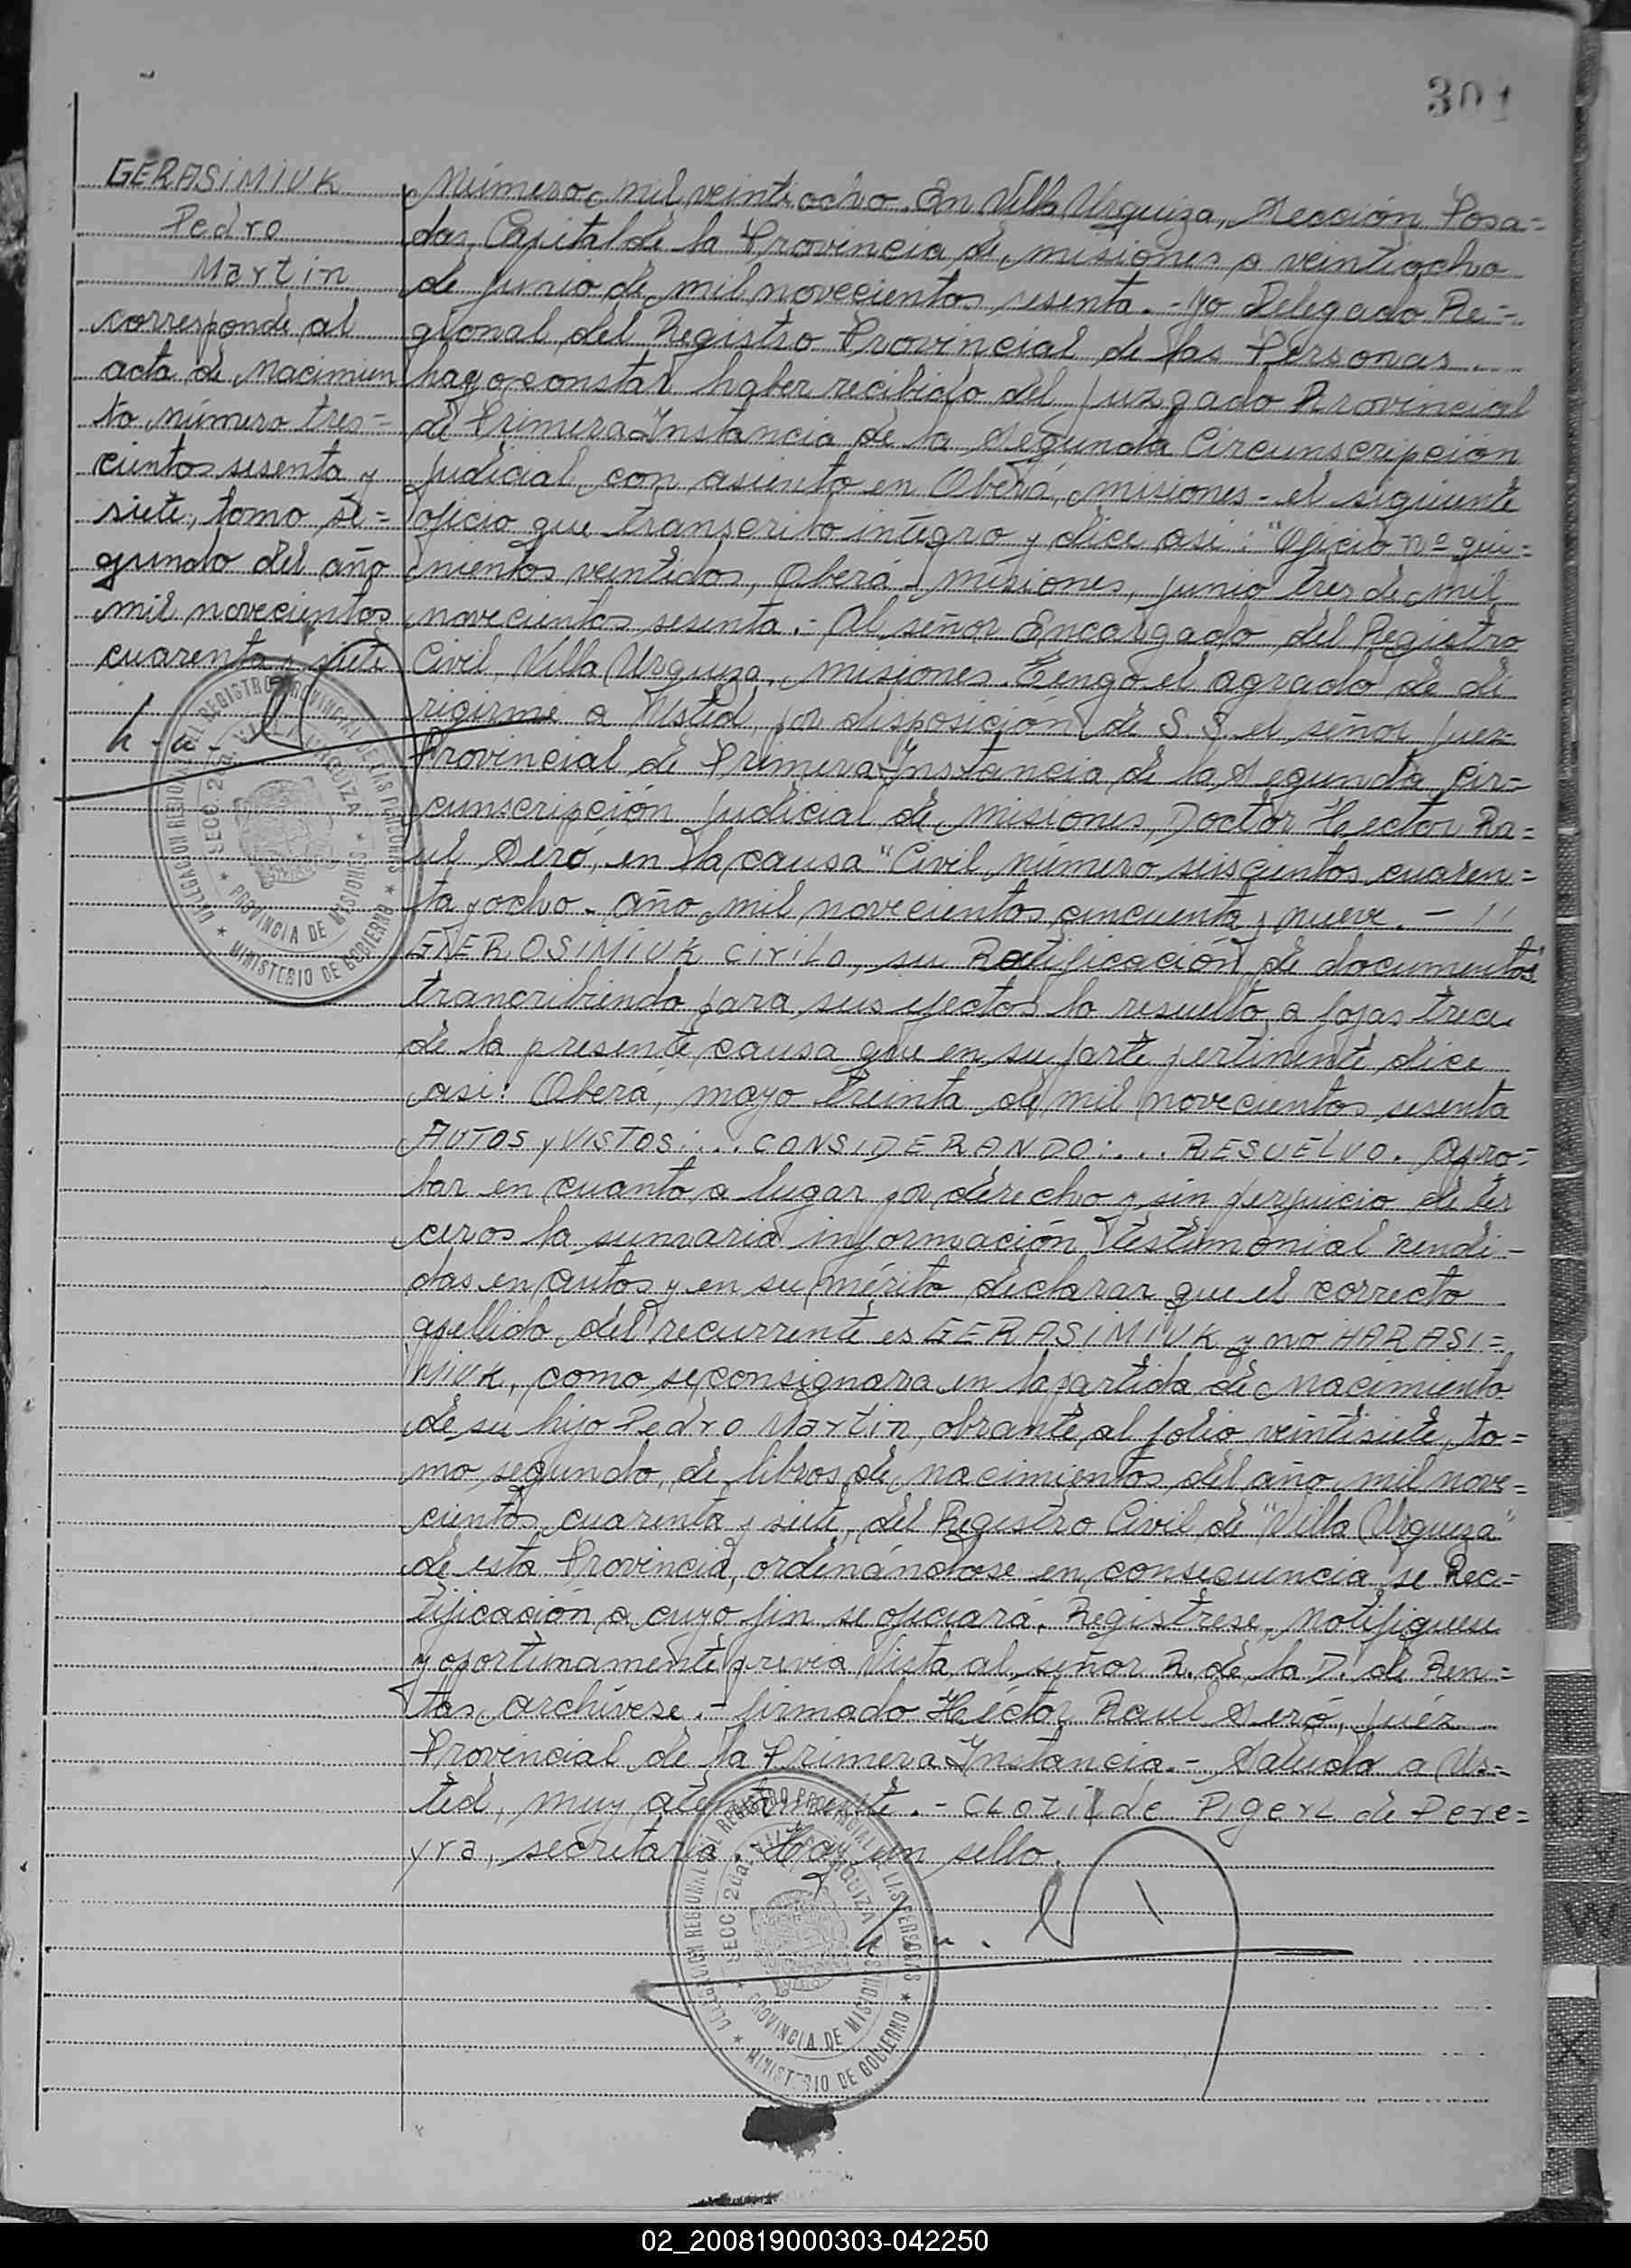 301
GERASIMIUK
Pedro
Martin
corresponde al
acta de Nacimien
to número tres=
cientos sesenta y
siete, tomo se=
gundo del año
mil novecientos
cuarenta y siete
Número mil veintiocho. En Villa Urquiza, Sección Posa=
das, Capital de la Provincia de Misiones a veintiocho
de junio de mil novecientos sesenta.- Yo Delegado Re=
gional del Registro Provincial de las Personas
hago constar haber recibido del Juzgado Provincial
de Primera Instancia de la Segunda Circunscripción
Judicial con asiento en Oberá, Misiones - el siguiente
oficio que transcribo integro y dice asi: "Oficio Nº qui=
nientos veintidos, Oberá - Misiones, junio tres de mil
novecientos sesenta.- Al señor Encargado del Registro
Civil, Villa Urquiza, Misiones. Tengo el agrado de di
rigirme a Usted, por disposición de S. S. el señor Juez
Provincial de Primera Instancia de la Segunda Cir=
cunscripción Judicial de Misiones, Doctor Hector Ra=
ul Seró, en la causa "Civil número seiscientos cuaren=
ta y ocho - año mil novecientos cincuenta y nueve. - "
GEROSIMIUK CIRILO, su Ratificación de documentos
trancribiendo para sus efectos lo resuelto a fojas trece
de la presente causa que en su parte pertinente dice
asi: Oberá, mayo treinta de mil novecientos sesenta
AUTOS y VISTOS:... CONSIDERANDO:... RESUELVO. Apro=
bar en cuanto a lugar por derecho y sin perjuicio de ter
ceros la sumaria información testimonial rendi-
das en autos y en su mérito declarar que el correcto
apellido del recurrente es GERASIMIUK y no HARASI=
MIUK, como se consignara en la partida de Nacimiento
de su hijo Pedro Martin, obrante al folio veintisiete, to=
mo segundo, de libros de nacimientos del año mil nove=
cientos cuarenta y siete, del Registro Civil de "Villa Urquiza"
de esta Provincia, ordenándose en consecuencia se Rec=
tificación a cuyo fin se oficiará. Registrese, Notifiquese
y oportunamente previa Vista al señor R. de la D. de Ren=
tas, archívese.- firmado Héctor Raul Seró, Juéz
Provincial de la Primera Instancia.- Saluda a Us=
ted, muy atentamente.- CLOTILDE de Pere=
yra, secretaria. Hay un sello.
DELEGACION REGIONAL DEL REGISTRO PROVINCIAL DE LAS PERSONAS
SECC. 2da. VILLA URQUIZA
PROVINCIA DE MISIONES
MINISTERIO DE GOBIERNO
DELEGACION REGIONAL DEL REGISTRO PROVINCIAL DE LAS PERSONAS
SECC. 2da. VILLA URQUIZA
PROVINCIA DE MISIONES
MINISTERIO DE GOBIERNO
02_200819000303-042250